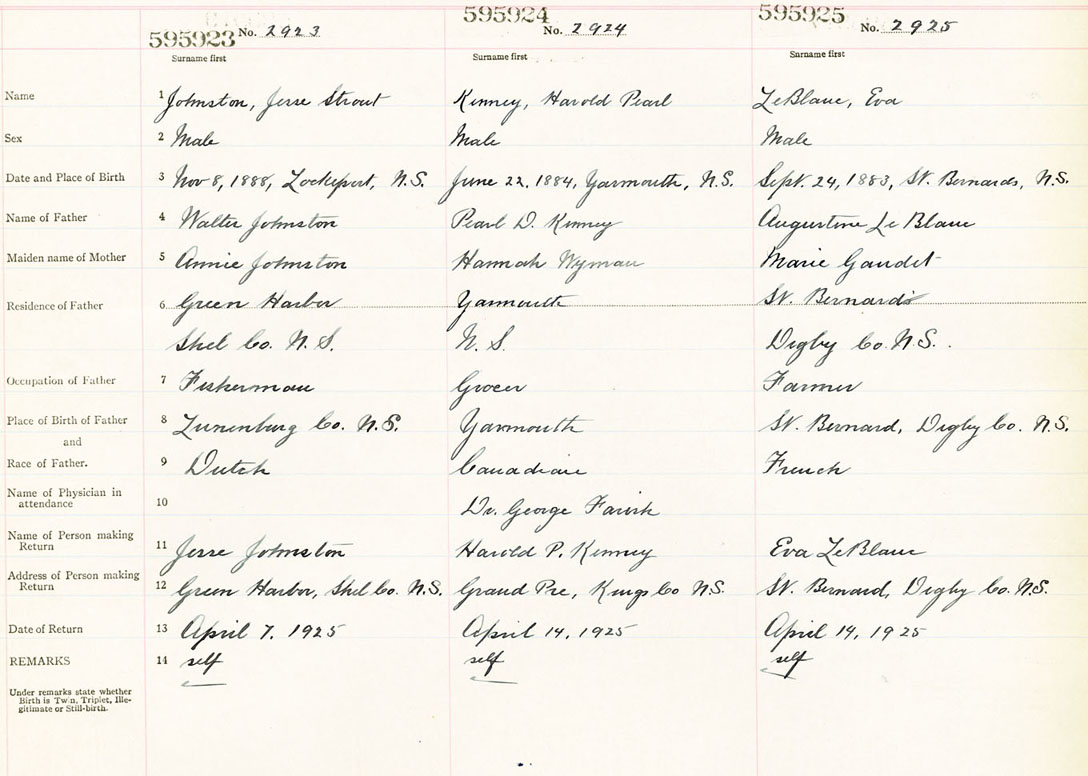 595923 No. 2923 595924 No. 2924 595925 No. 2925
Surname first Surname first Surname first
Name 1 Johnston, Jesse Strout Kinney, Harold Pearl LeBlanc, Eva
Sex 2 Male Male Male
Date and Place of Birth 3 Nov 8, 1888, Lockeport, N.S. June 22, 1884, Yarmouth, N.S. Sept. 24, 1883, St. Bernards, N.S.
Name of Father 4 Walter Johnston Pearl D. Kinney Augustine Le Blanc
Maiden name of Mother 5 Annie Johnston Hannah Wyman Marie Gaudet
Residence of Father 6 Green Harbor Yarmouth St. Bernard's
Shel Co. N.S. N.S. Digby Co. N.S.
Occupation of Father 7 Fisherman Grocer Farmer
Place of Birth of Father 8 Lunenburg Co. N.S. Yarmouth St. Bernard, Digby Co. N.S.
and
Race of Father. 9 Dutch Canadian French
Name of Physician in
attendance 10 Dr. George Farish
Name of Person making
Return 11 Jesse Johnston Harold P. Kinney Eva LeBlanc
Address of Person making
Return 12 Green Harbor, Shel Co. N.S. Grand Pre, Kings Co N.S. St. Bernard, Digby Co. N.S.
Date of Return 13 April 7, 1925 April 14, 1925 April 14, 1925
REMARKS 14 self self self
Under remarks state whether
Birth is Twin, Triplet, Ille-
gitimate or Still-birth.